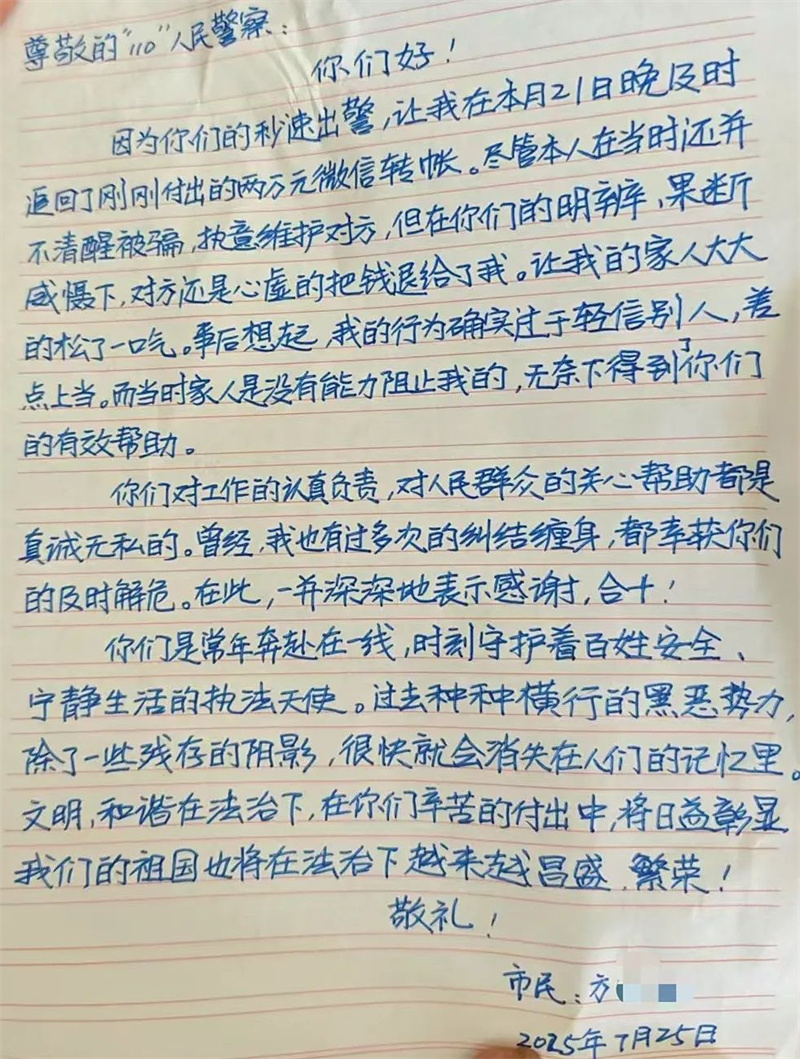 尊敬的“110”人民警察：
你们好！
因为你们的秒速出警，让我在本月21日晚及时
返回了刚刚付出的两万元微信转帐。尽管本人在当时还并
不清醒被骗，执意维护对方，但在你们的明辛辛、果断
威慑下，对方还是心虚的把钱退给了我。让我的家人大大
的松了一口气。事后想起，我的行为确实过于轻信别人，差
点上当。而当时家人是没有能力阻止我的，无奈下得到了你们
的有效帮助。
你们对工作的认真负责，对人民群众的关心帮助都是
真诚无私的。曾经，我也有过多次的纠结缠身，都幸获你们
的及时解危。在此，一并深深地表示感谢，合十！
你们是常年奔赴在一线，时刻守护着百姓安全、
宁静生活的执法天使。过去种种横行的黑恶势力，
除了一些残存的阴影，很快就会消失在人们的记忆里。
文明，和谐在法治下，在你们辛苦的付出中，将日益彰显
我们的祖国也将在法治下越来越昌盛、繁荣！
敬礼！
市民：方
2025年7月25日